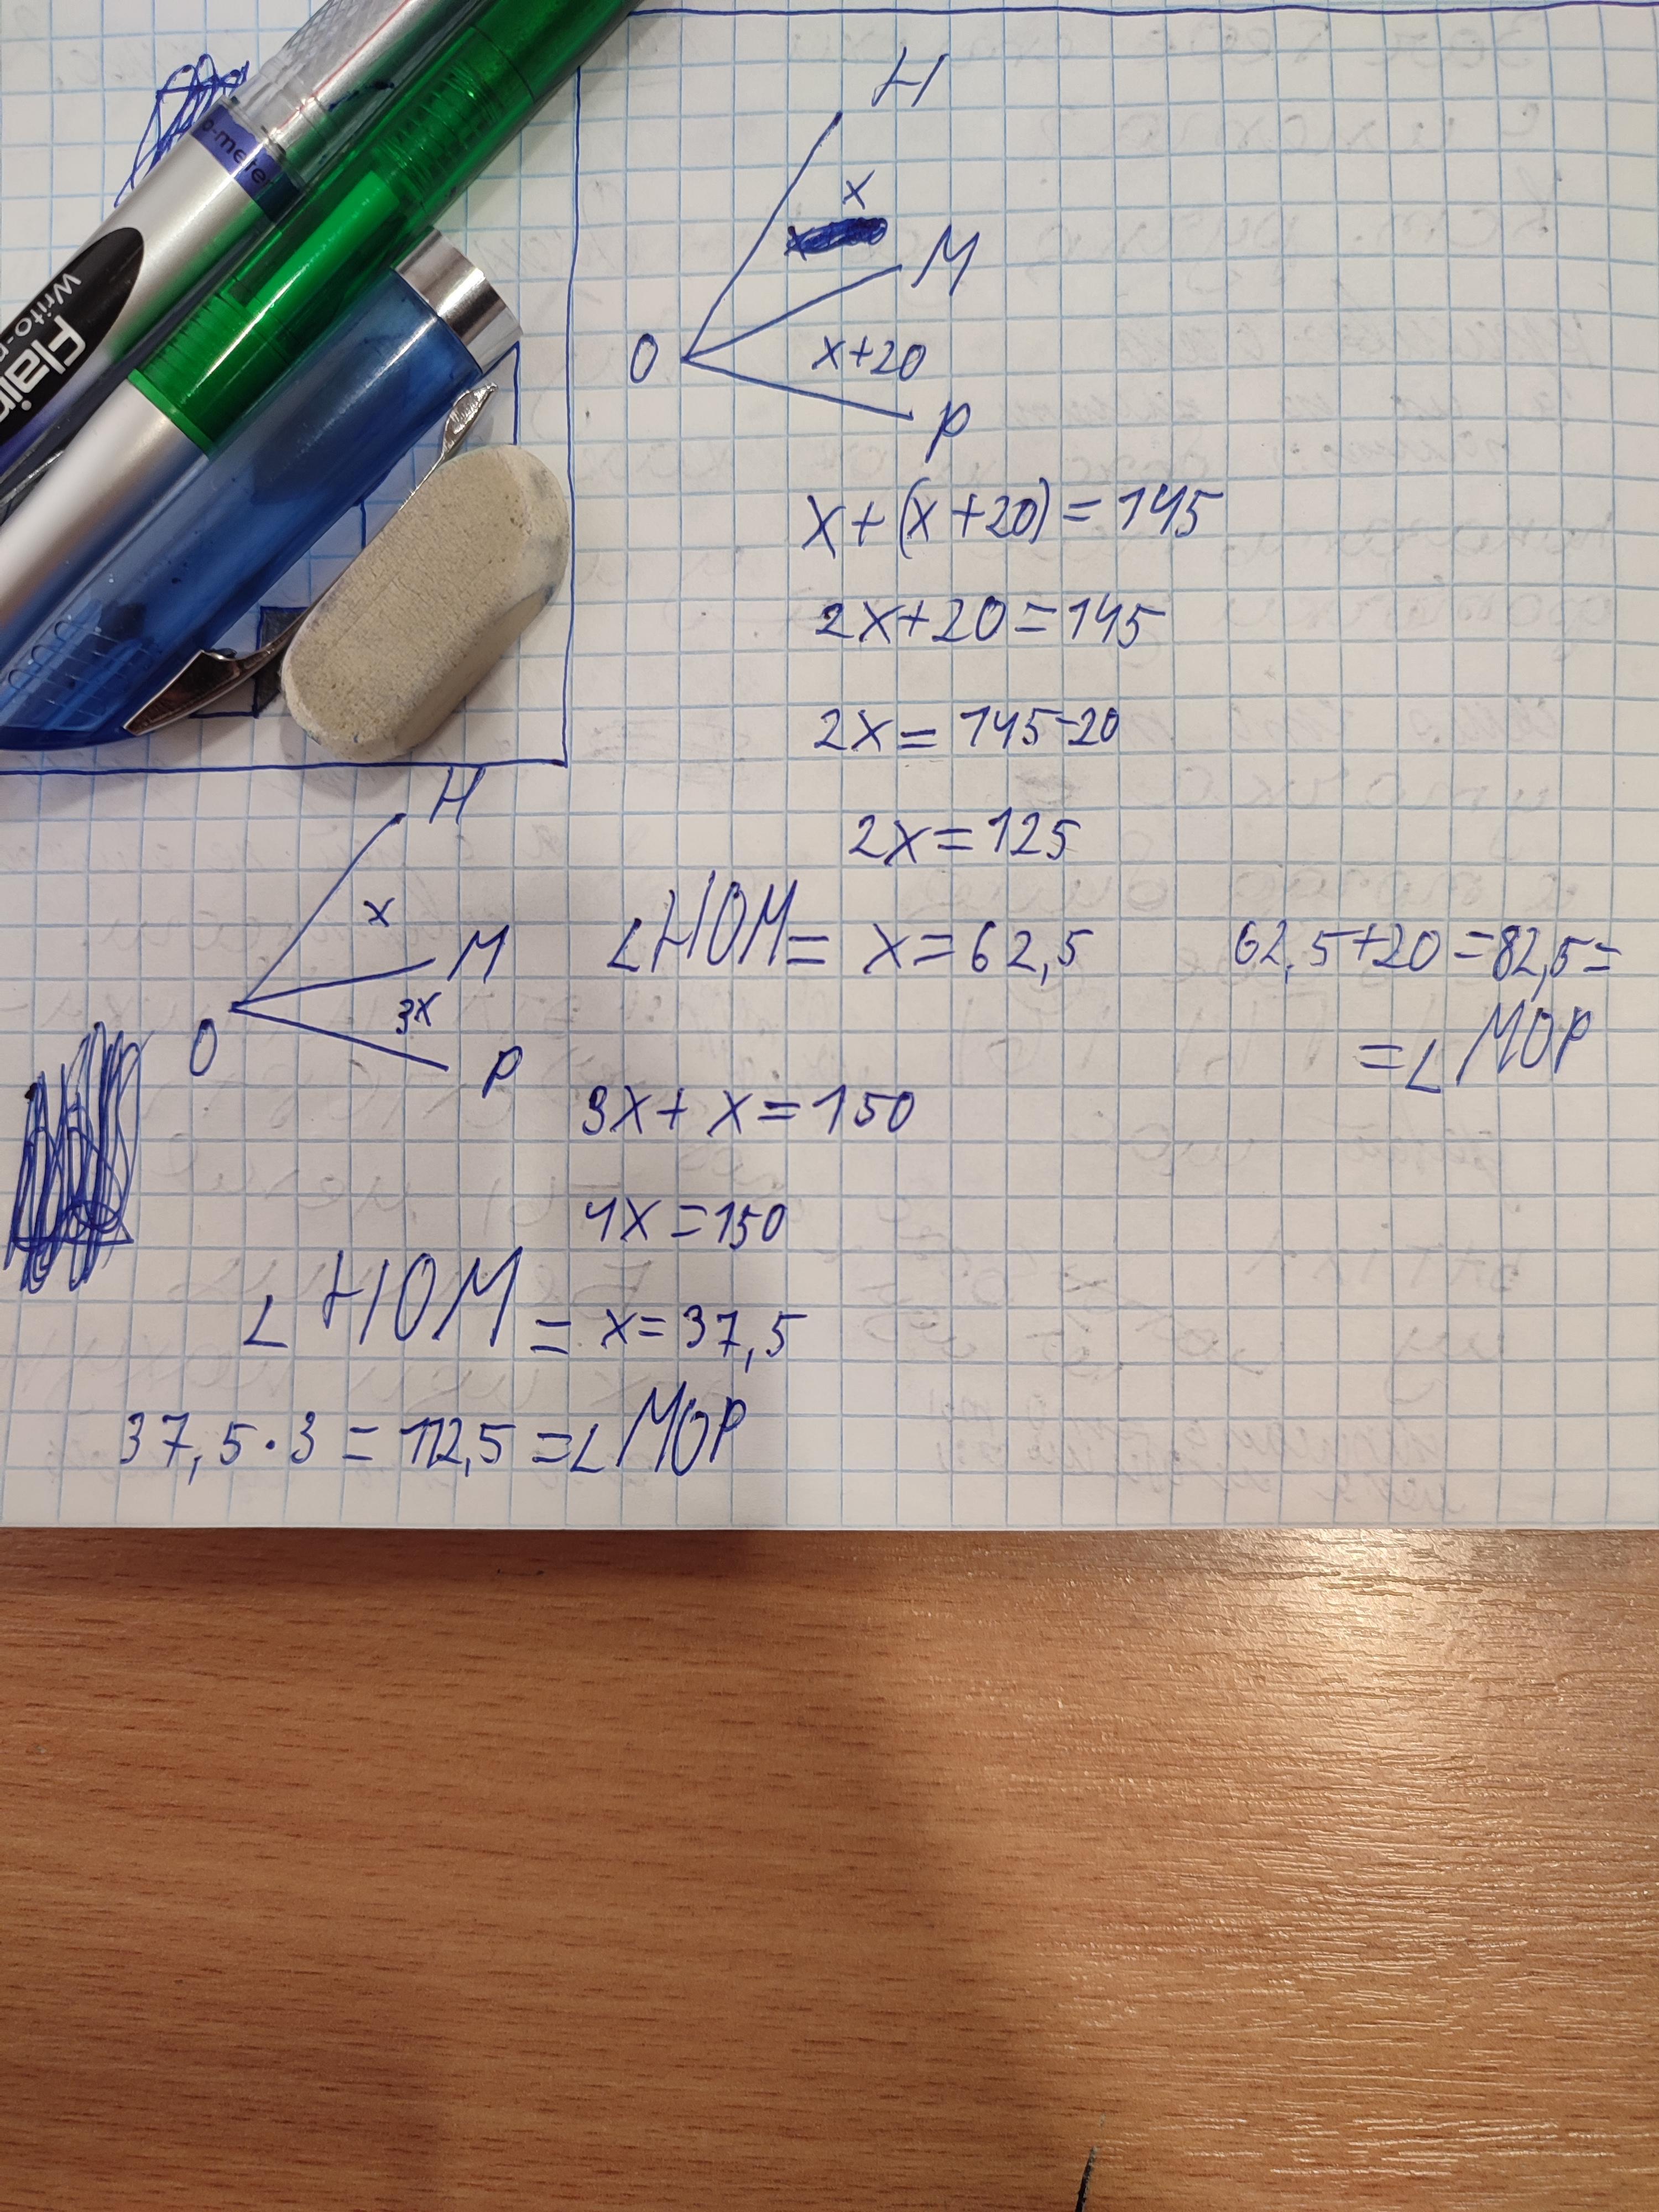 H
x
M
O
x+20
P
x+(x+20)=145
2x+20=145
2x=145-20
2x=125
∠HOM= x=62,5
62,5+20=82,5=
=∠MOP
H
x
M
3x
O
P
3x+x=150
4x=150
∠HOM= x=37,5
37,5·3=112,5=∠MOP
o-meter
Flair
Writo-